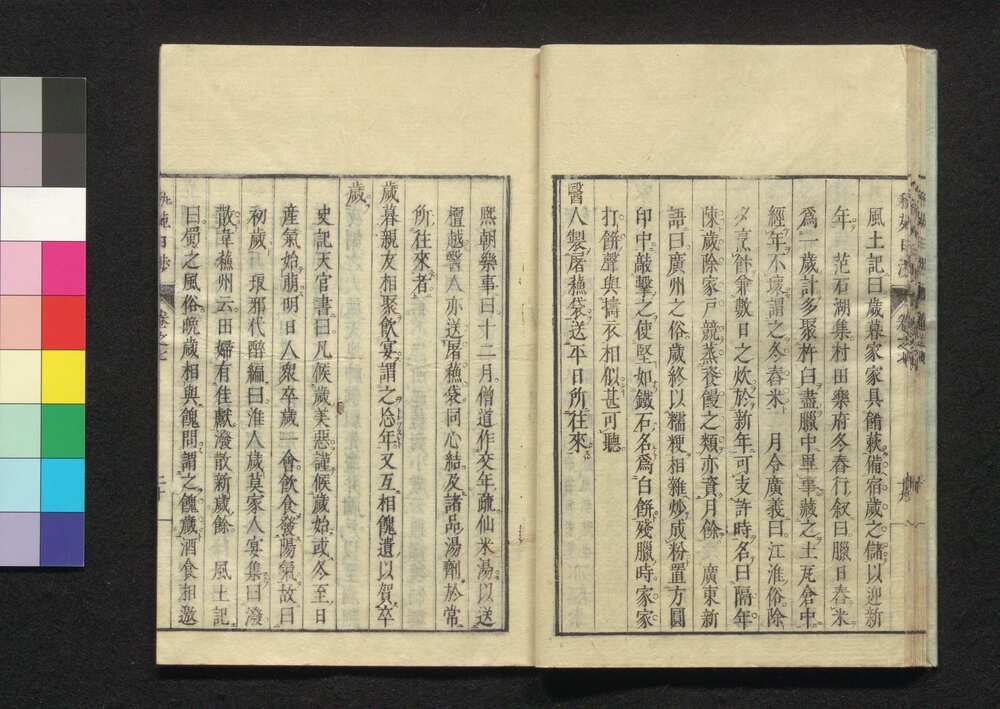 風土記曰歲暮家家具餚蔌備宿歲之儲以迎新
年 范石湖集村田樂府冬舂行叙曰臘日舂米
爲一歲計多聚杵臼盡臘中畢事藏之土瓦倉中
經年不壞謂之冬舂米 月令廣義曰江淮俗除
夕烹飪兼數日之炊於新年可支許時名曰隔年
陳歲除家戸競蒸餈饅之類亦資月餘 廣東新
語曰廣州之俗歲終以糯粳相雜炒成粉置方圓
印中敲擊之使堅如鐵石名爲白餅殘臘時家家
打餅聲與擣衣相似甚可聽
醫人製屠蘇袋送平日所往來
熈朝樂事曰十二月僧道作交年疏仙米湯以送
檀越醫人亦送屠蘇袋同心結及諸品湯劑於常
所往來者
歲暮親友相聚飮宴謂之忘年又互相餽遺以賀卒
歲
史記天官書曰凡候歲美惡謹候歲始或冬至日
產氣始萠明日人衆卒歲一會飮食發陽氣故曰
初歲 琅邪代醉編曰淮人歲莫家人宴集曰潑
散韋蘇州云田婦有佳獻潑散新歲餘 風土記
曰蜀之風俗晩歲相與餽問謂之餽歲酒食相邀